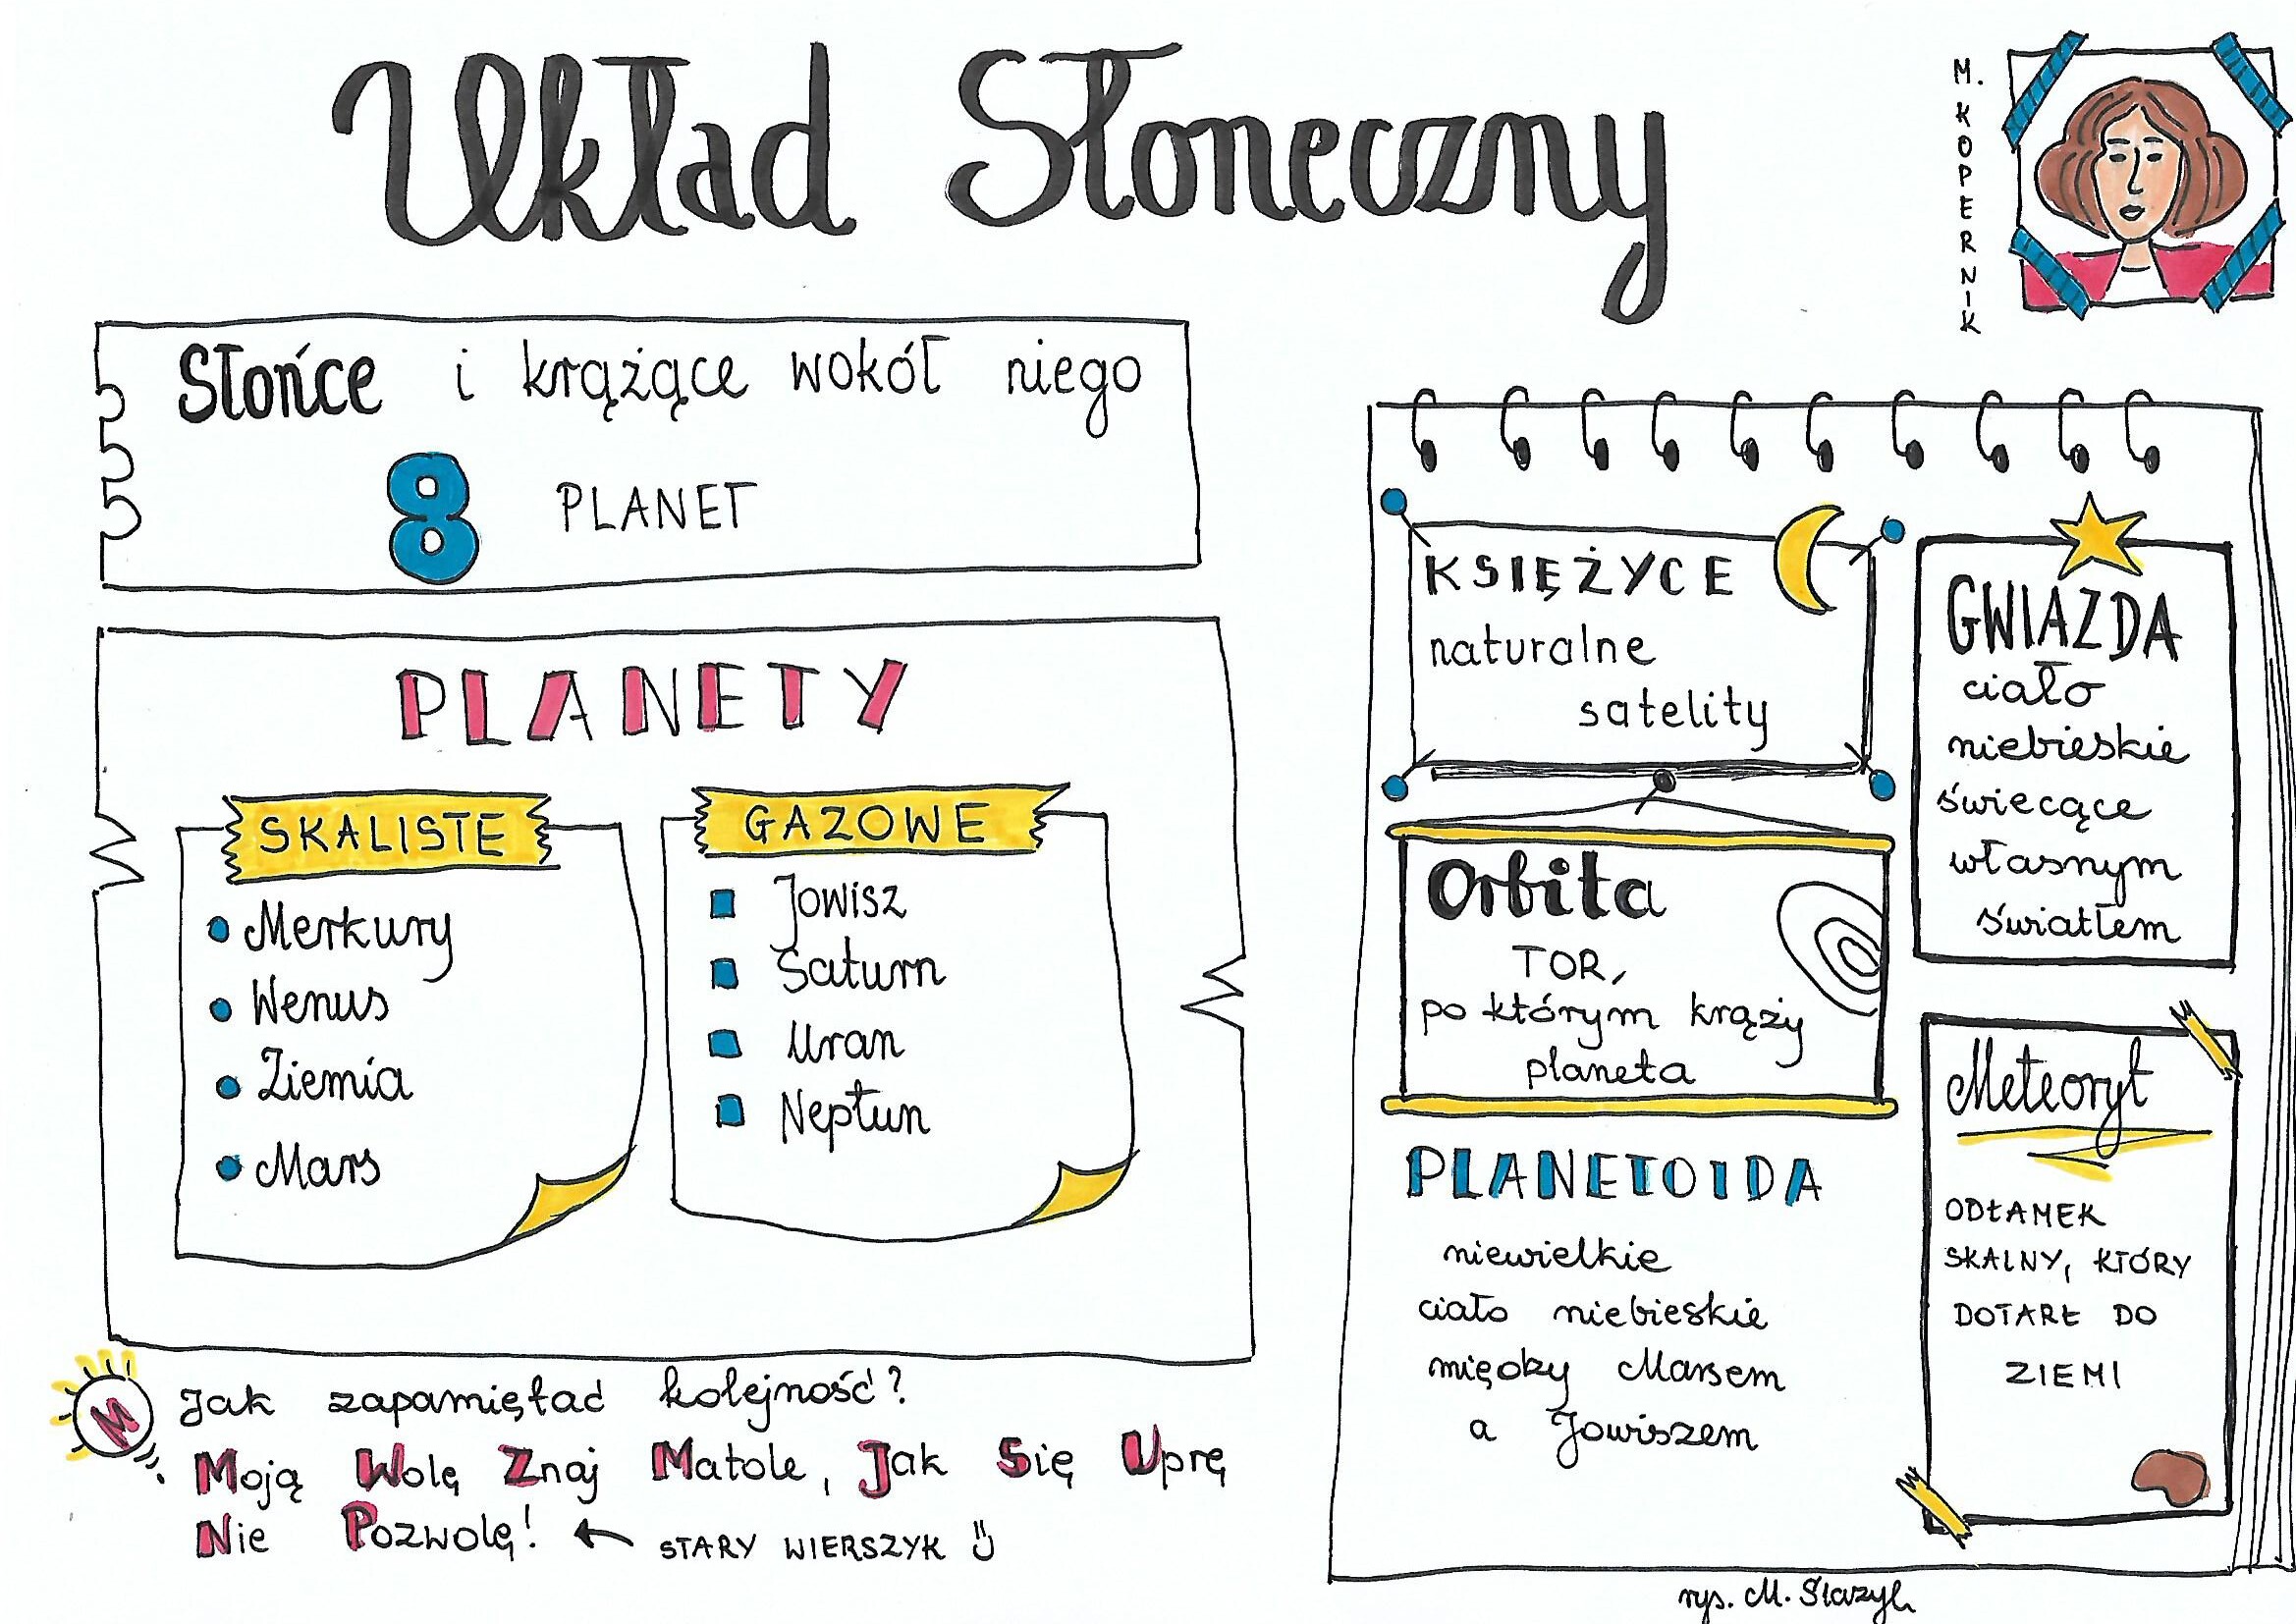 Układ Słoneczny
M. KOPERNIK
Słońce i krążące wokół niego
8 PLANET
PLANETY
SKALISTE
Merkury
Wenus
Ziemia
Mars
GAZOWE
Jowisz
Saturn
Uran
Neptun
Jak zapamiętać kolejność?
M
Moją Wolę Znaj Matole, Jak Się Uprę
Nie Pozwolę! ← STARY WIERSZYK
KSIĘŻYCE
naturalne
satelity
GWIAZDA
ciało
niebieskie
świecące
własnym
światłem
Orbita
TOR,
po którym krąży
planeta
Meteoryt
ODŁAMEK
SKALNY, KTÓRY
DOTARŁ DO
ZIEMI
PLANETOIDA
niewielkie
ciało niebieskie
między Marsem
a Jowiszem
rys. M.